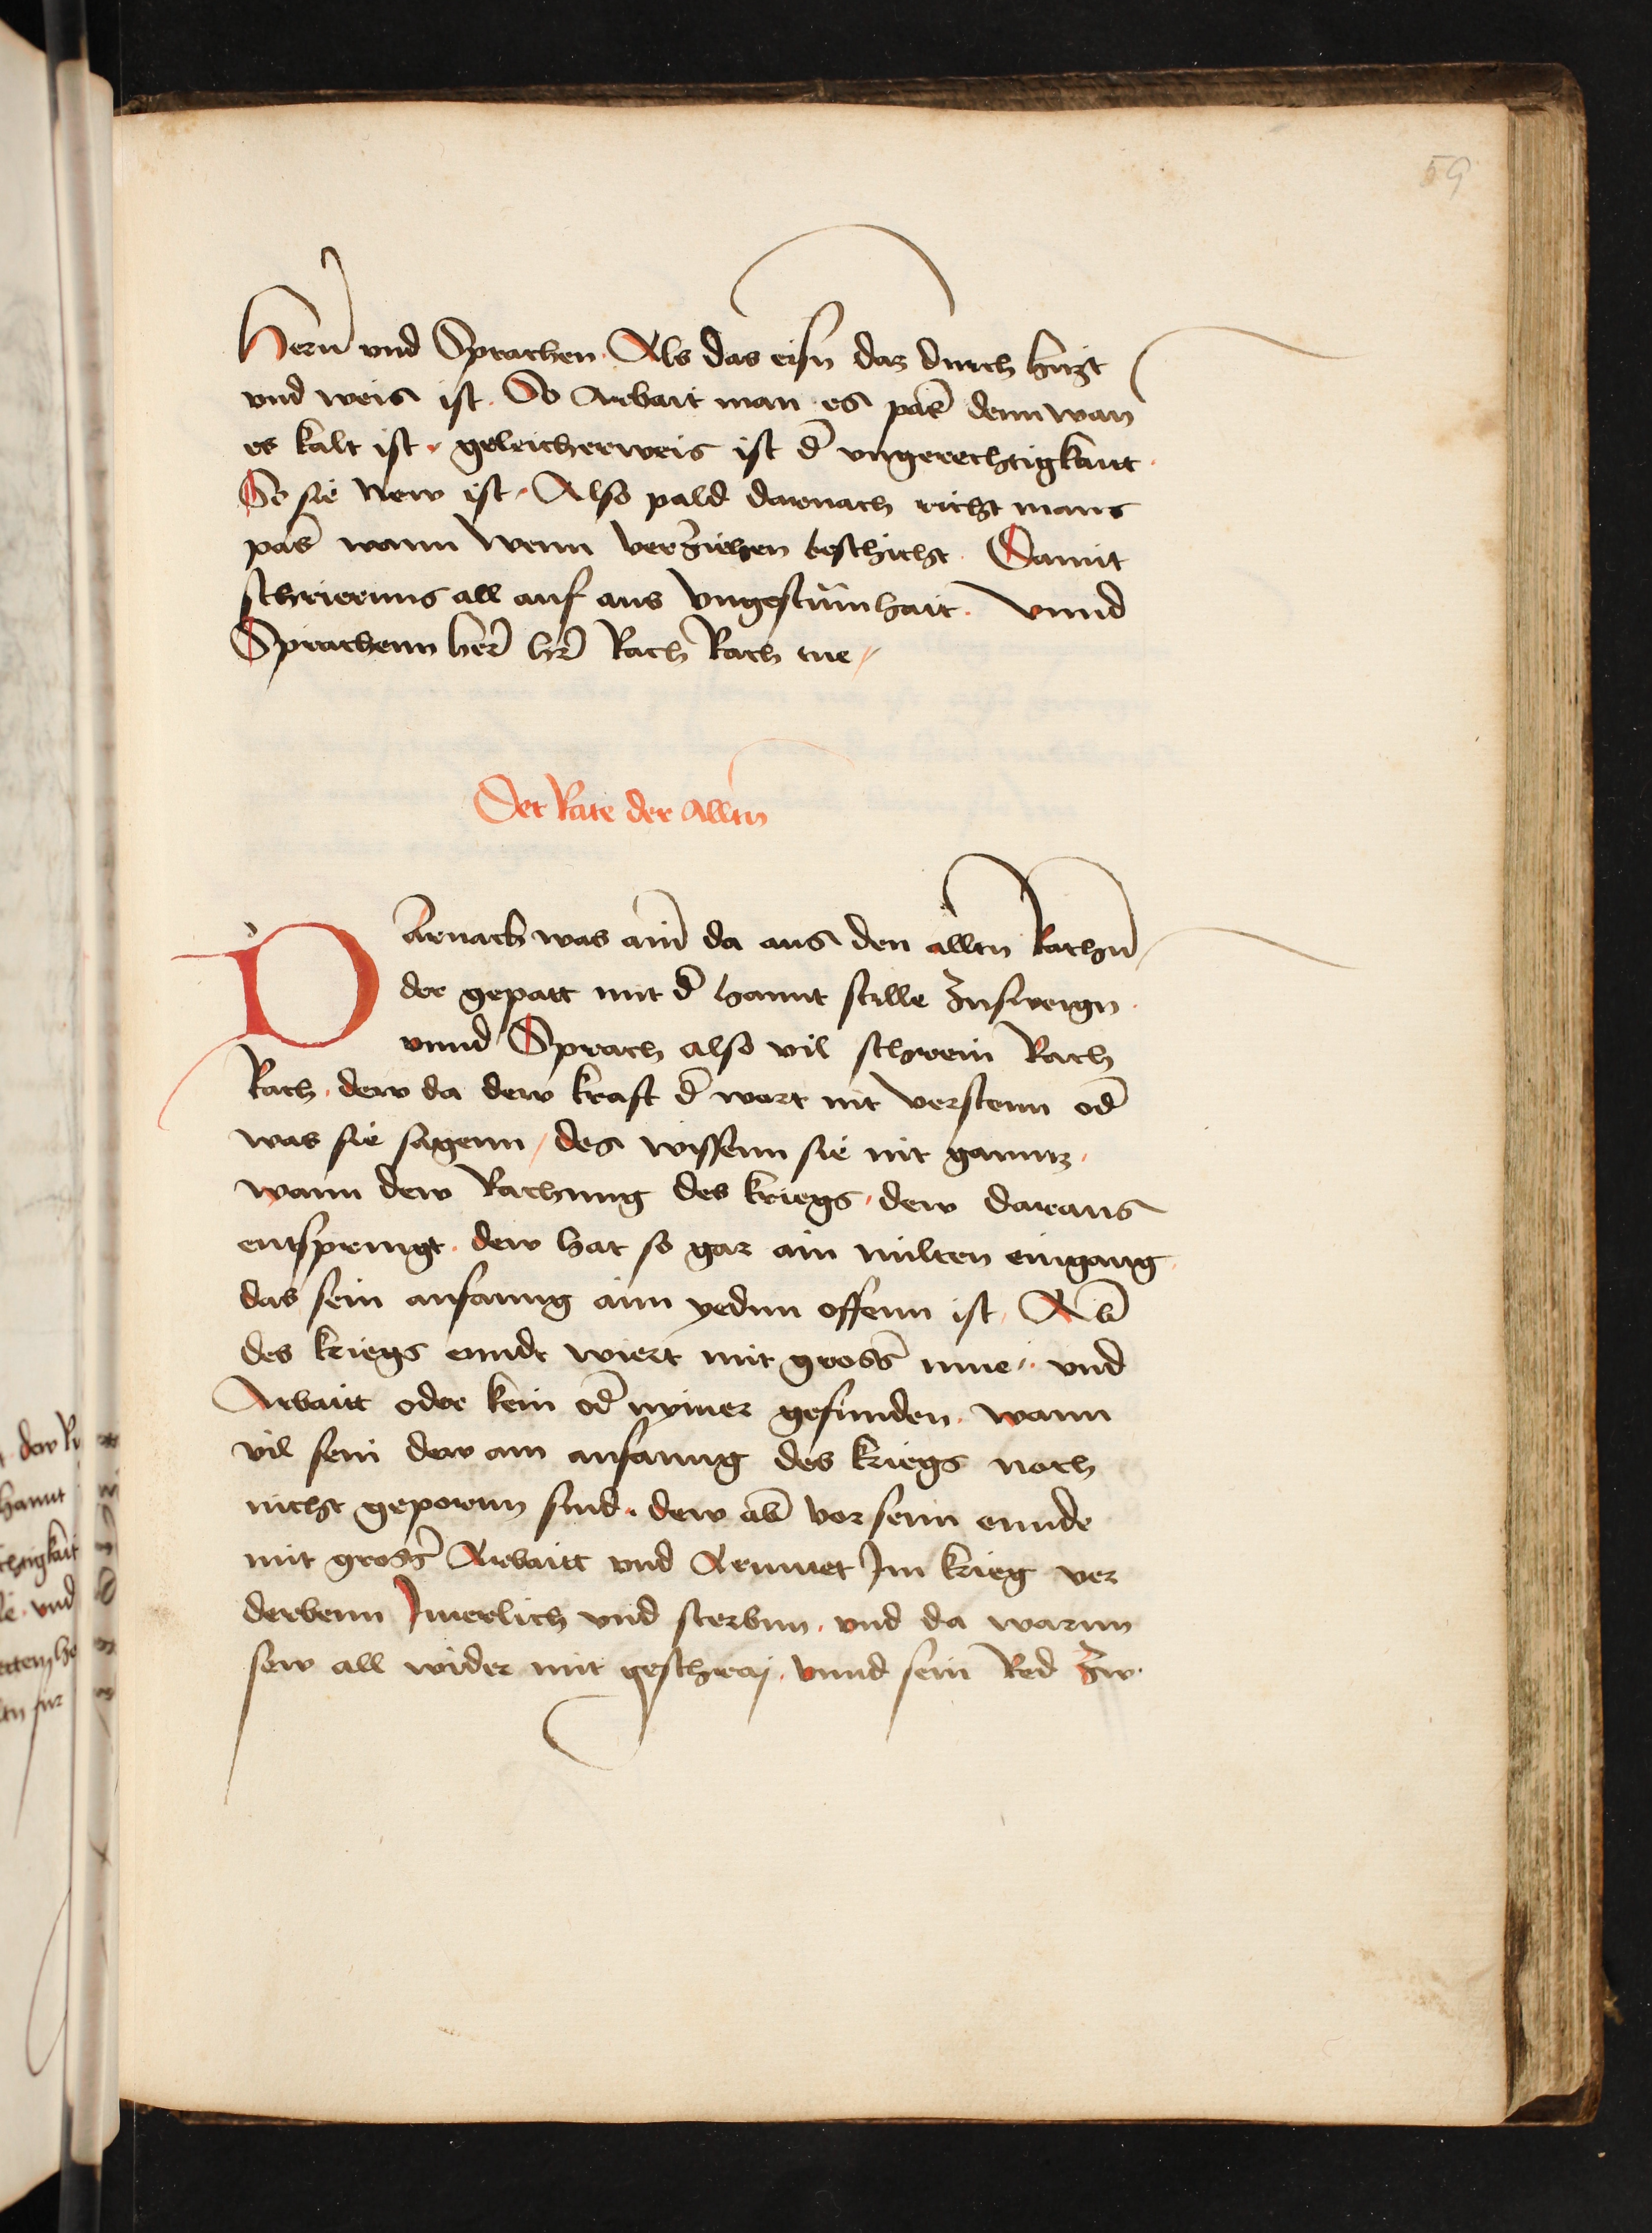 59
Herñ vnd Sprachen. Als das eisn daz durch hitzt
vnd weis ist. So Arbait man es pas̄ denn wan
es kalt ist. geleicherweis ist d̄ vngerechtigkait.
So sie New ist. Also pald darnach richt mans
pas̄ wann wenn verziehen beschicht. Damit
schrierens all auf aus Vngestumhait. Vnnd
Sprachenn her̄ hr̄ Rach Rach tue
Der Rate der Alltn
Darnach was ain̄ da aus den alltn Rathn̄
der gepatt mit d̄ hannt stille Zusweign.
vnnd Sprach also vil schreein Rach
Rach. dew da dew kraft d̄ wort nit verstenn od̄
was sie sagenn / des wissenn sie nit ganntz.
wann dew Rachung des kriegs. dew daraus
entspringt. dew hat so gar ain milten eingang
das sein anfanng aim yednn offenn ist. Ab̄
des kriegs ennde wiert mit gross̄ mue. vnd
Arbaitt oder kein od̄ nymer gefunden. wann
vil sein dew am anfanng des kriegs noch
nicht geporenn sind. dew ab̄ vor seim ennde
mit gross̄ Arbaitt vnd Armuet Im krieg ver
derbenn Jmerlich vnd sterbnn. vnd da warnn
sew all wider mit geschraj. vnnd sein Red Zw